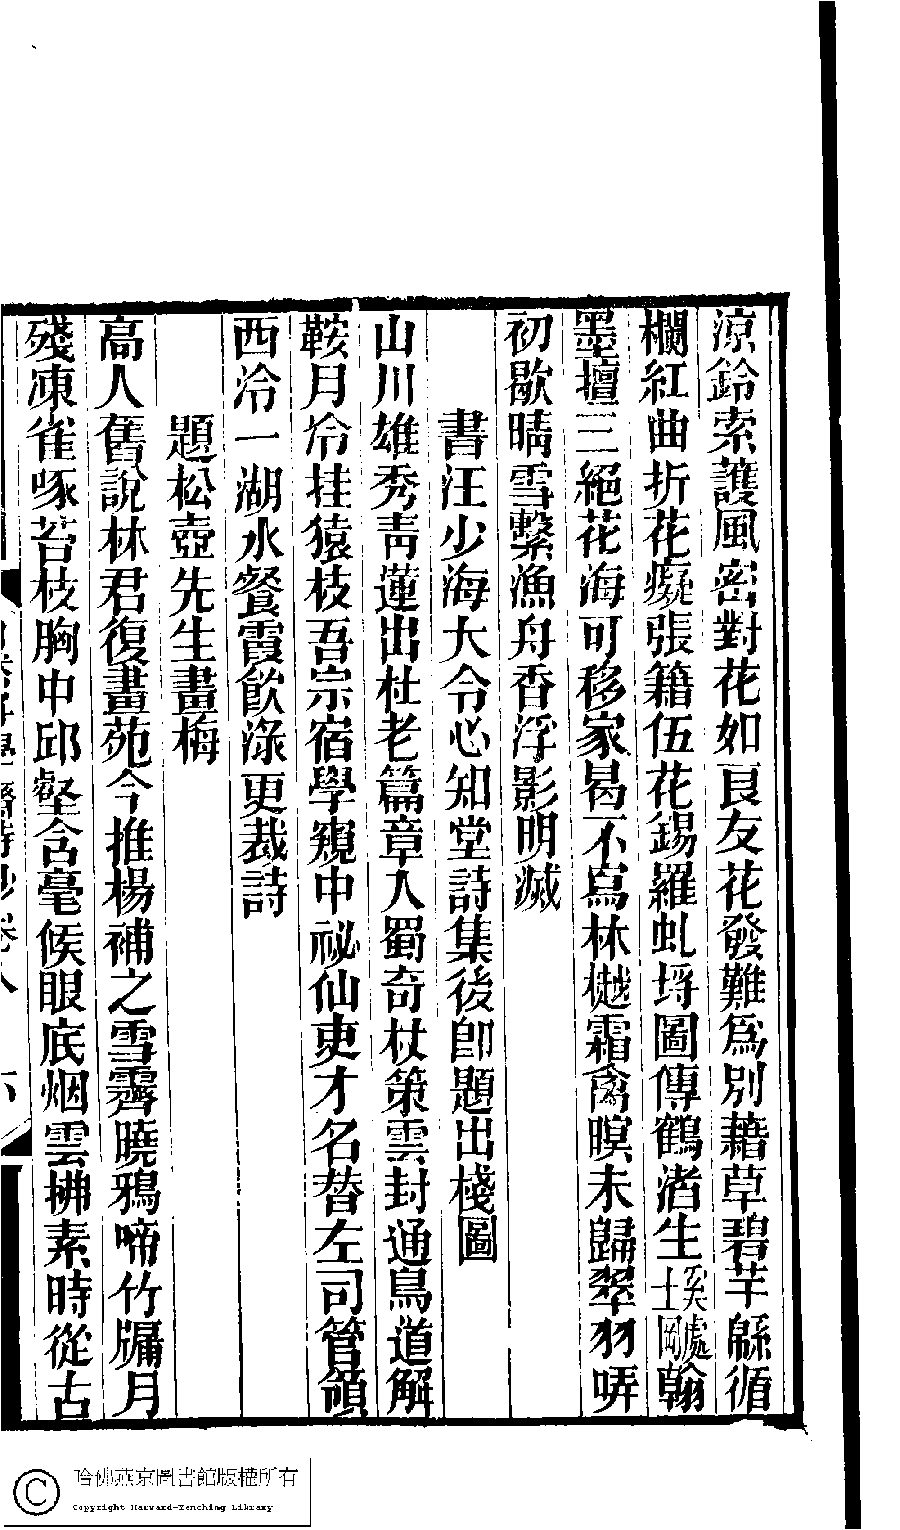 涼鈴索護風密對花如良友花發難為別藉草碧芊緜循
欄紅曲折花癡張籍伍花錫羅虬埒圖傳鶴渚生奚處士岡翰
墨壇三絕花海可移家曷不寫林樾霜禽暝未歸翠羽哢
初歇晴雪繫漁舟香浮影明滅
書汪少海大令心知堂詩集後卽題出棧圖
山川雄秀青蓮出杜老篇章入蜀奇杖策雲封通鳥道解
鞍月冷挂猿枝吾宗宿學窺中祕仙吏才名替左司管領
西泠一湖水餐霞飲淥更裁詩
題松壺先生畫梅
高人舊說林君復畫苑今推楊補之雪霽曉鴉啼竹牖月
殘凍雀啄苔枝胸中邱壑含毫候眼底烟雲拂素時從古
學齋詩鈔卷八
六
哈佛燕京圖書館版權所有
Copyright Harvard-Yenching Library